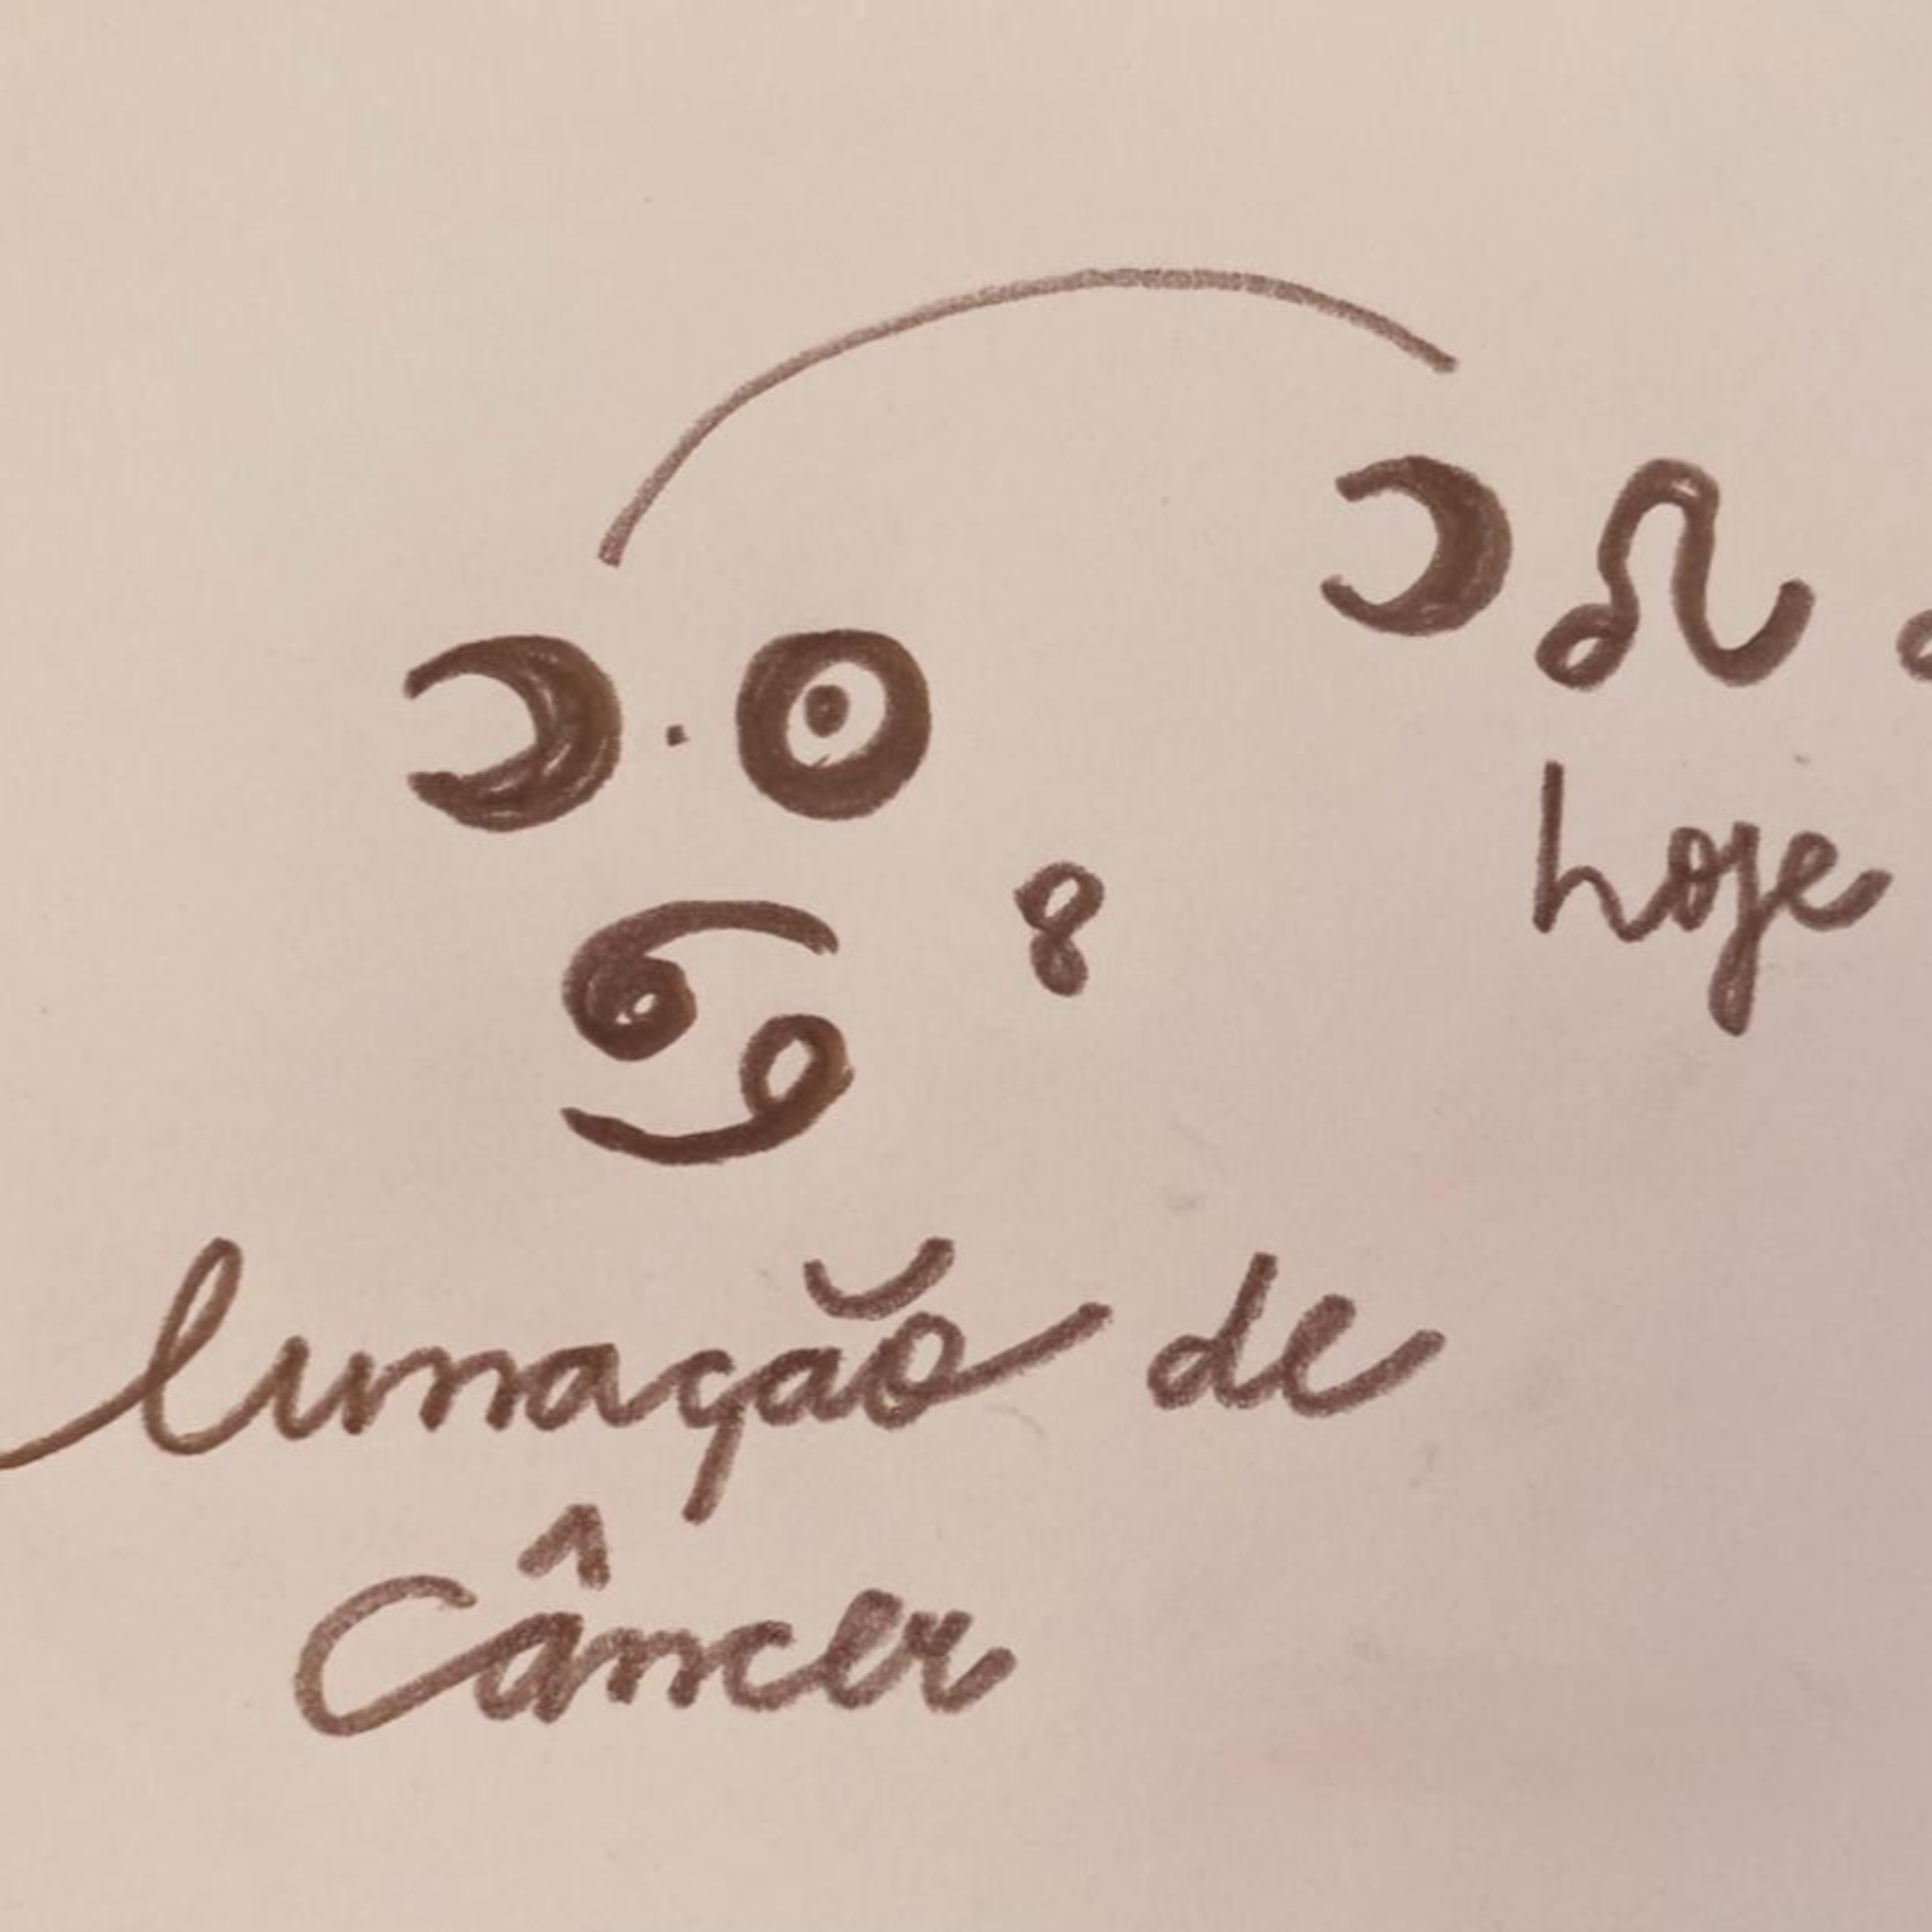 ☽ ♌
☽ · ☉
hoje
♋ 8
lunação de
Câncer